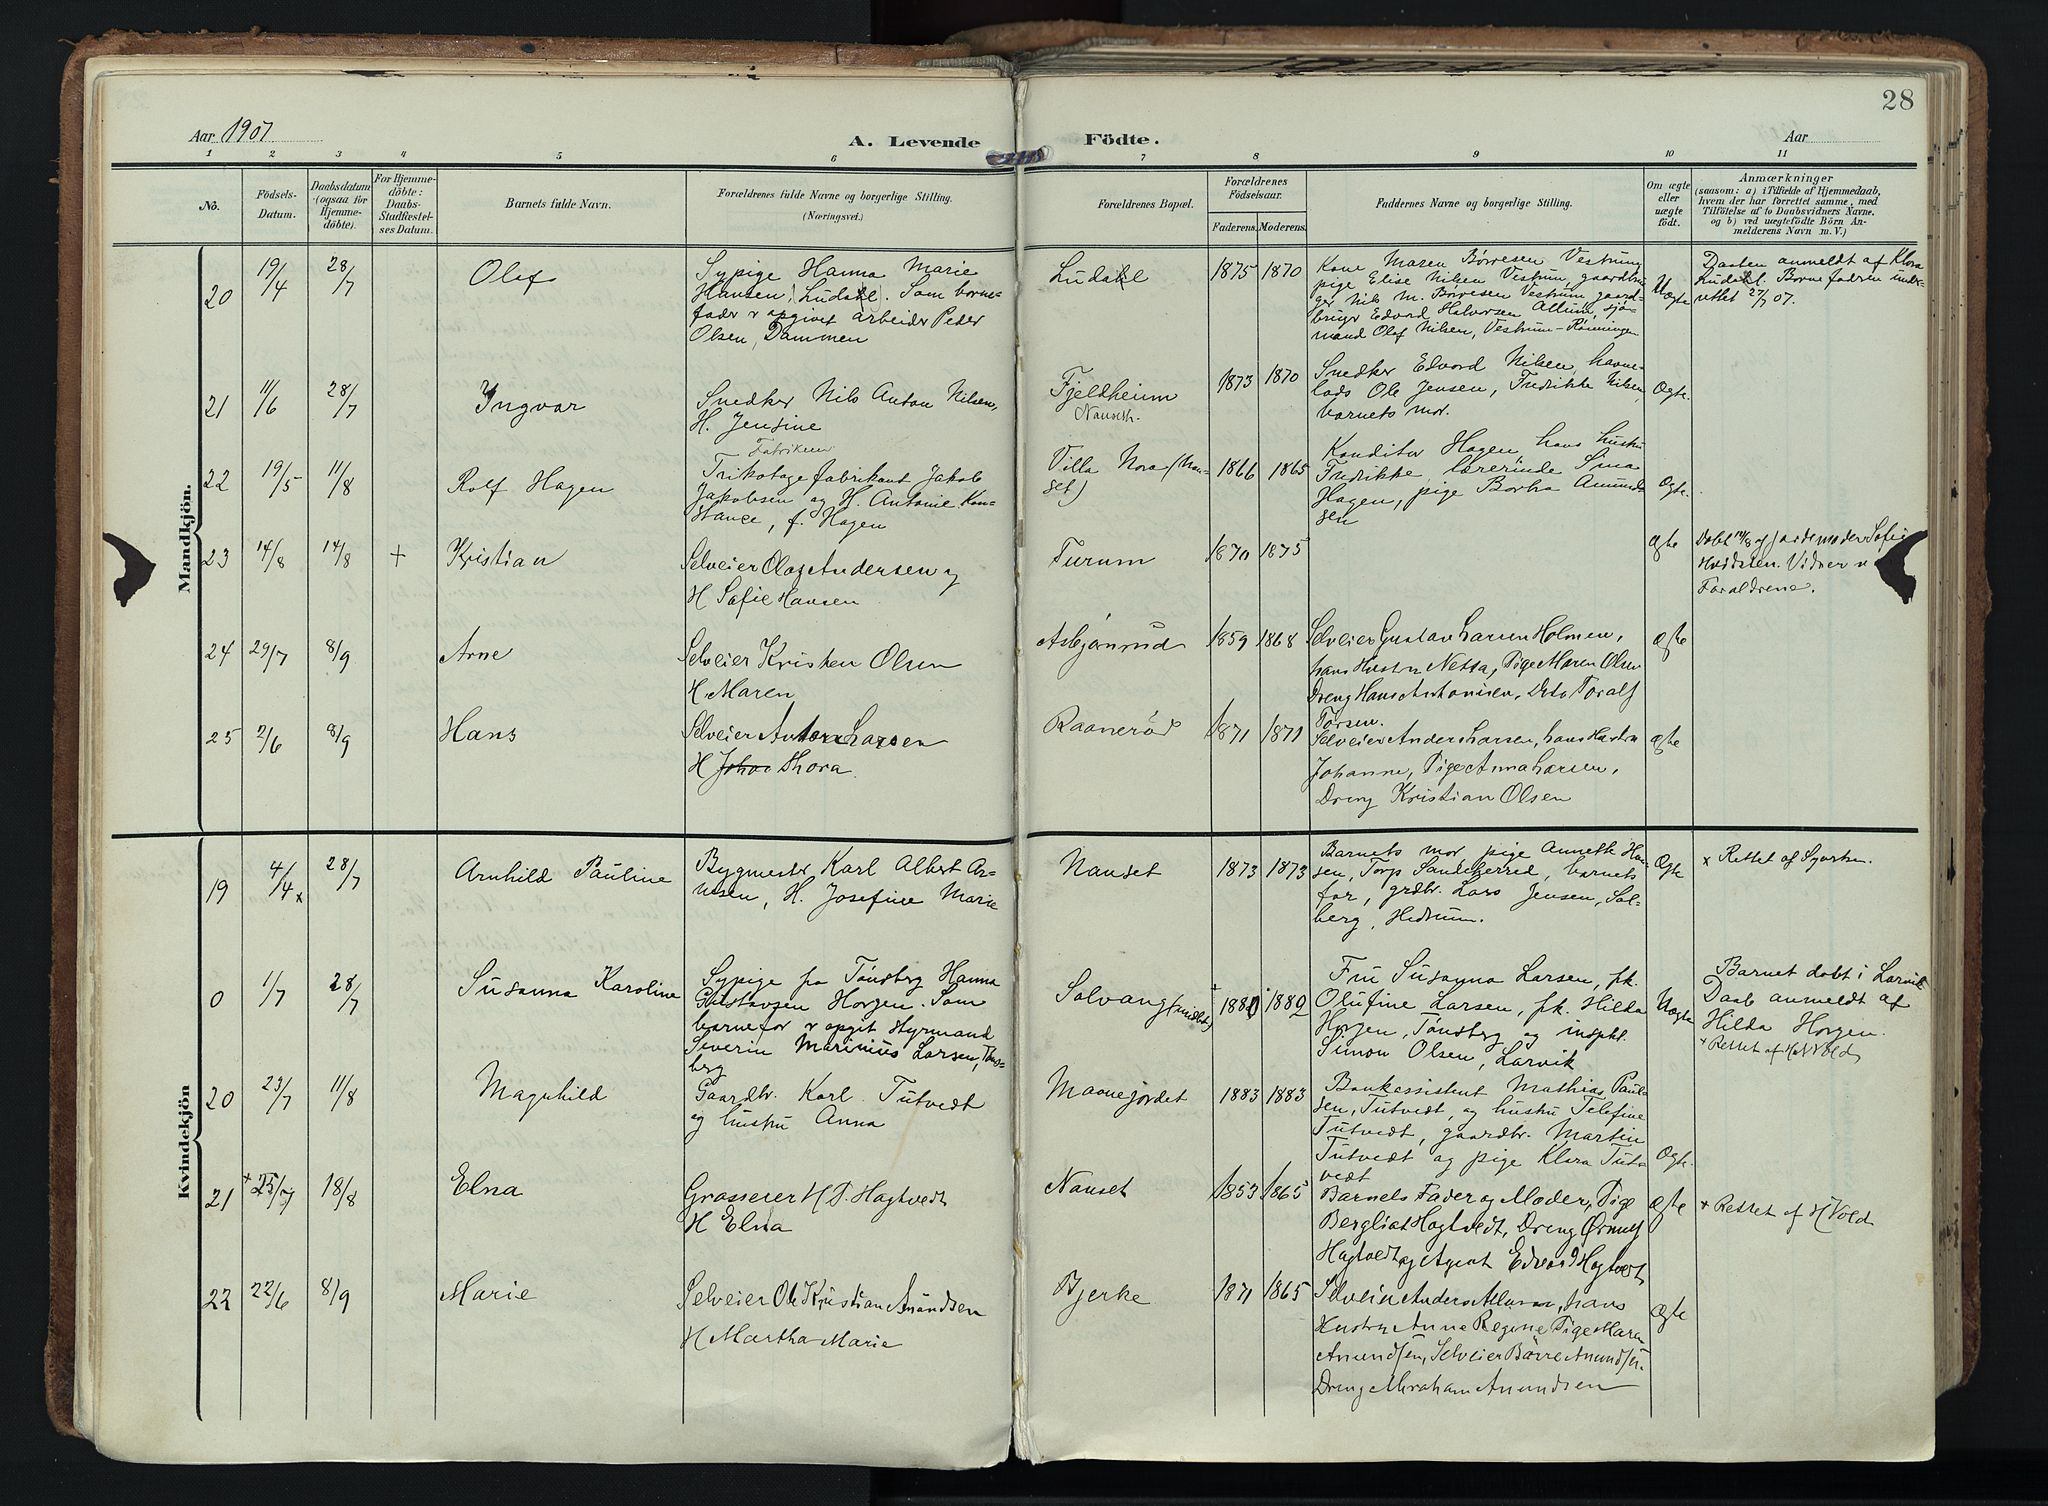 28
Aar 1907
A. Levende
Födte.
Aar
1 2 3 4 5 6 7 8 9 10 11
No.
Födsels-
Datum.
Daabsdatum
(ogsaa for
Hjemme-
döbte).
For Hjemme-
döbte:
Daabs-
Stadfæstel-
ses Datum.
Barnets fulde Navn.
Forældrenes fulde Navne og borgerlige Stilling.
(Næringsvei.)
Forældrenes Bopæl.
Forældrenes
Födselsaar.
Faderens. Moderens.
Faddernes Navne og borgerlige Stilling.
Om ægte
eller
uægte
födt.
Anmærkninger
(saasom: a) i Tilfælde af Hjemmedaab,
hvem der har forrettet samme, med
Tilföielse af to Daabsvidners Navne,
og b) ved uægtefödte Börn An-
melderens Navn m. V.)
Mandkjön.
20 19/4 28/7 Olaf
Sypige Hanna Marie
Hansen, Ludahl. Som barne-
fader er opgivet arbeider Peder
Olsen, Dammen
Ludahl 1875 1870
Kone Maren Børresen Vestrum,
pige Elise Nilsen Vestrum, gaardbru-
ger Nils M. Børresen Vestrum, gaard-
bruger Edvard Halvorsen Allum, sjø-
mand Olaf Nilsen, Vestrum-Rønningen
Uægte
Daaben anmeldt af Klara
Ludahl. Barnefaderen under-
rettet 27/7 07.
21 11/6 28/7 Yngvar
Snedker Nils Anton Nilsen,
H. Jensine
Fjeldheim
Nanseth.
1873 1870
Snedker Edvard Nilsen, havne-
lods Ole Jensen, Fredrikke Nilsen,
barnets mor.
Ægte.
22 19/5 11/8 Rolf Hagen
Fabrikeier
Trikotagefabrikant Jakob
Jakobsen og H. Antonie Kon-
stance, f. Hagen
Villa Nora (Nan-
set)
1866 1865
Konditor Hagen, hans hustru
Fredrikke, lærerinde Sina
Hagen, pige Borha Amund-
sen
Ægte.
23 14/8 14/8 + Kristian
Selveier Olaf Andersen og
H Sofie Hansen
Furum 1870 1875
ægte
Døbt 14/8 af jordemoder Sofie
Vidner
Forældrene.
24 29/7 8/9 Arne
Selveier Kristen Olsen
H. Maren
Asbjønrud 1859 1868
Selveier Gustav Larsen Holmen,
hans Hustru Netta, Pige Maren Olsen
Dreng Hans Antonisen, Dito Toralf
Torsen.
ægte
25 2/6 8/9 Hans
Selveier Anton Larsen
H Thora
Raanerød 1871 1871
Selveier Anders Larsen, hans Hustru
Johanne, Pige Anna Larsen,
Dreng Kristian Olsen
ægte
Kvindekjön
19 4/4 x 28/7 Arnhild Pauline
Bygmester Karl Albert Ar-
nesen, H. Josefine Marie
Nanset 1873 1873
Barnets mor, pige Annette Han-
sen, Torp Sandeherred, barnets
far, grdbr. Lars Jensen, Sol-
berg, Hedrum.
Ægte
x Rettet af Sysetsen.
0 1/7 28/7 Susanna Karoline
Sypige fra Tønsberg Hanna
Gustavsen Horgen. Som
barnefar er opgit styrmand
Severin Marinius Larsen, Tøns-
berg
Solvang 1880 1882
Fru Susanna Larsen, frk.
Olufine Larsen, frk. Hilda
Horgen, Tønsberg og inspkt.
Simon Olsen, Larvik
Uægte
Barnet døbt i Larvik
Daab anmeldt af
Hilda Horgen.
+ Rettet af H Vold
20 23/7 11/8 Magnhild
Gaardbr. Karl Tutvedt
og hustru Anna
Maanejordet 1883 1883
Bankassistent Mathias Paul-
sen, Tutvedt, og hustru Telefine
Tutvedt, gaardbr. Martin
Tutvedt og pige Klara Tut-
vedt
Ægte.
21 + 25/7 18/8 Elna
Grosserer H P. Hagtvedt
H Elna
Nanset 1853 1865
Barnets Fader og Moder, Pige
Bergliot Hagtvedt, Dreng Ørnulf
Hagtvedt og Agent Edvard Hagtvedt
ægte
+ Rettet af H Vold
22 22/6 8/9 Marie
Selveier Ole Kristian Amundsen
H Martha Marie
Bjerke 1871 1865
Selveier Anders Allum, hans
Hustru Anne Regine Pige Maren
Amundsen, Selveier Børre Amundsen.
Dreng Abraham Amundsen
ægte